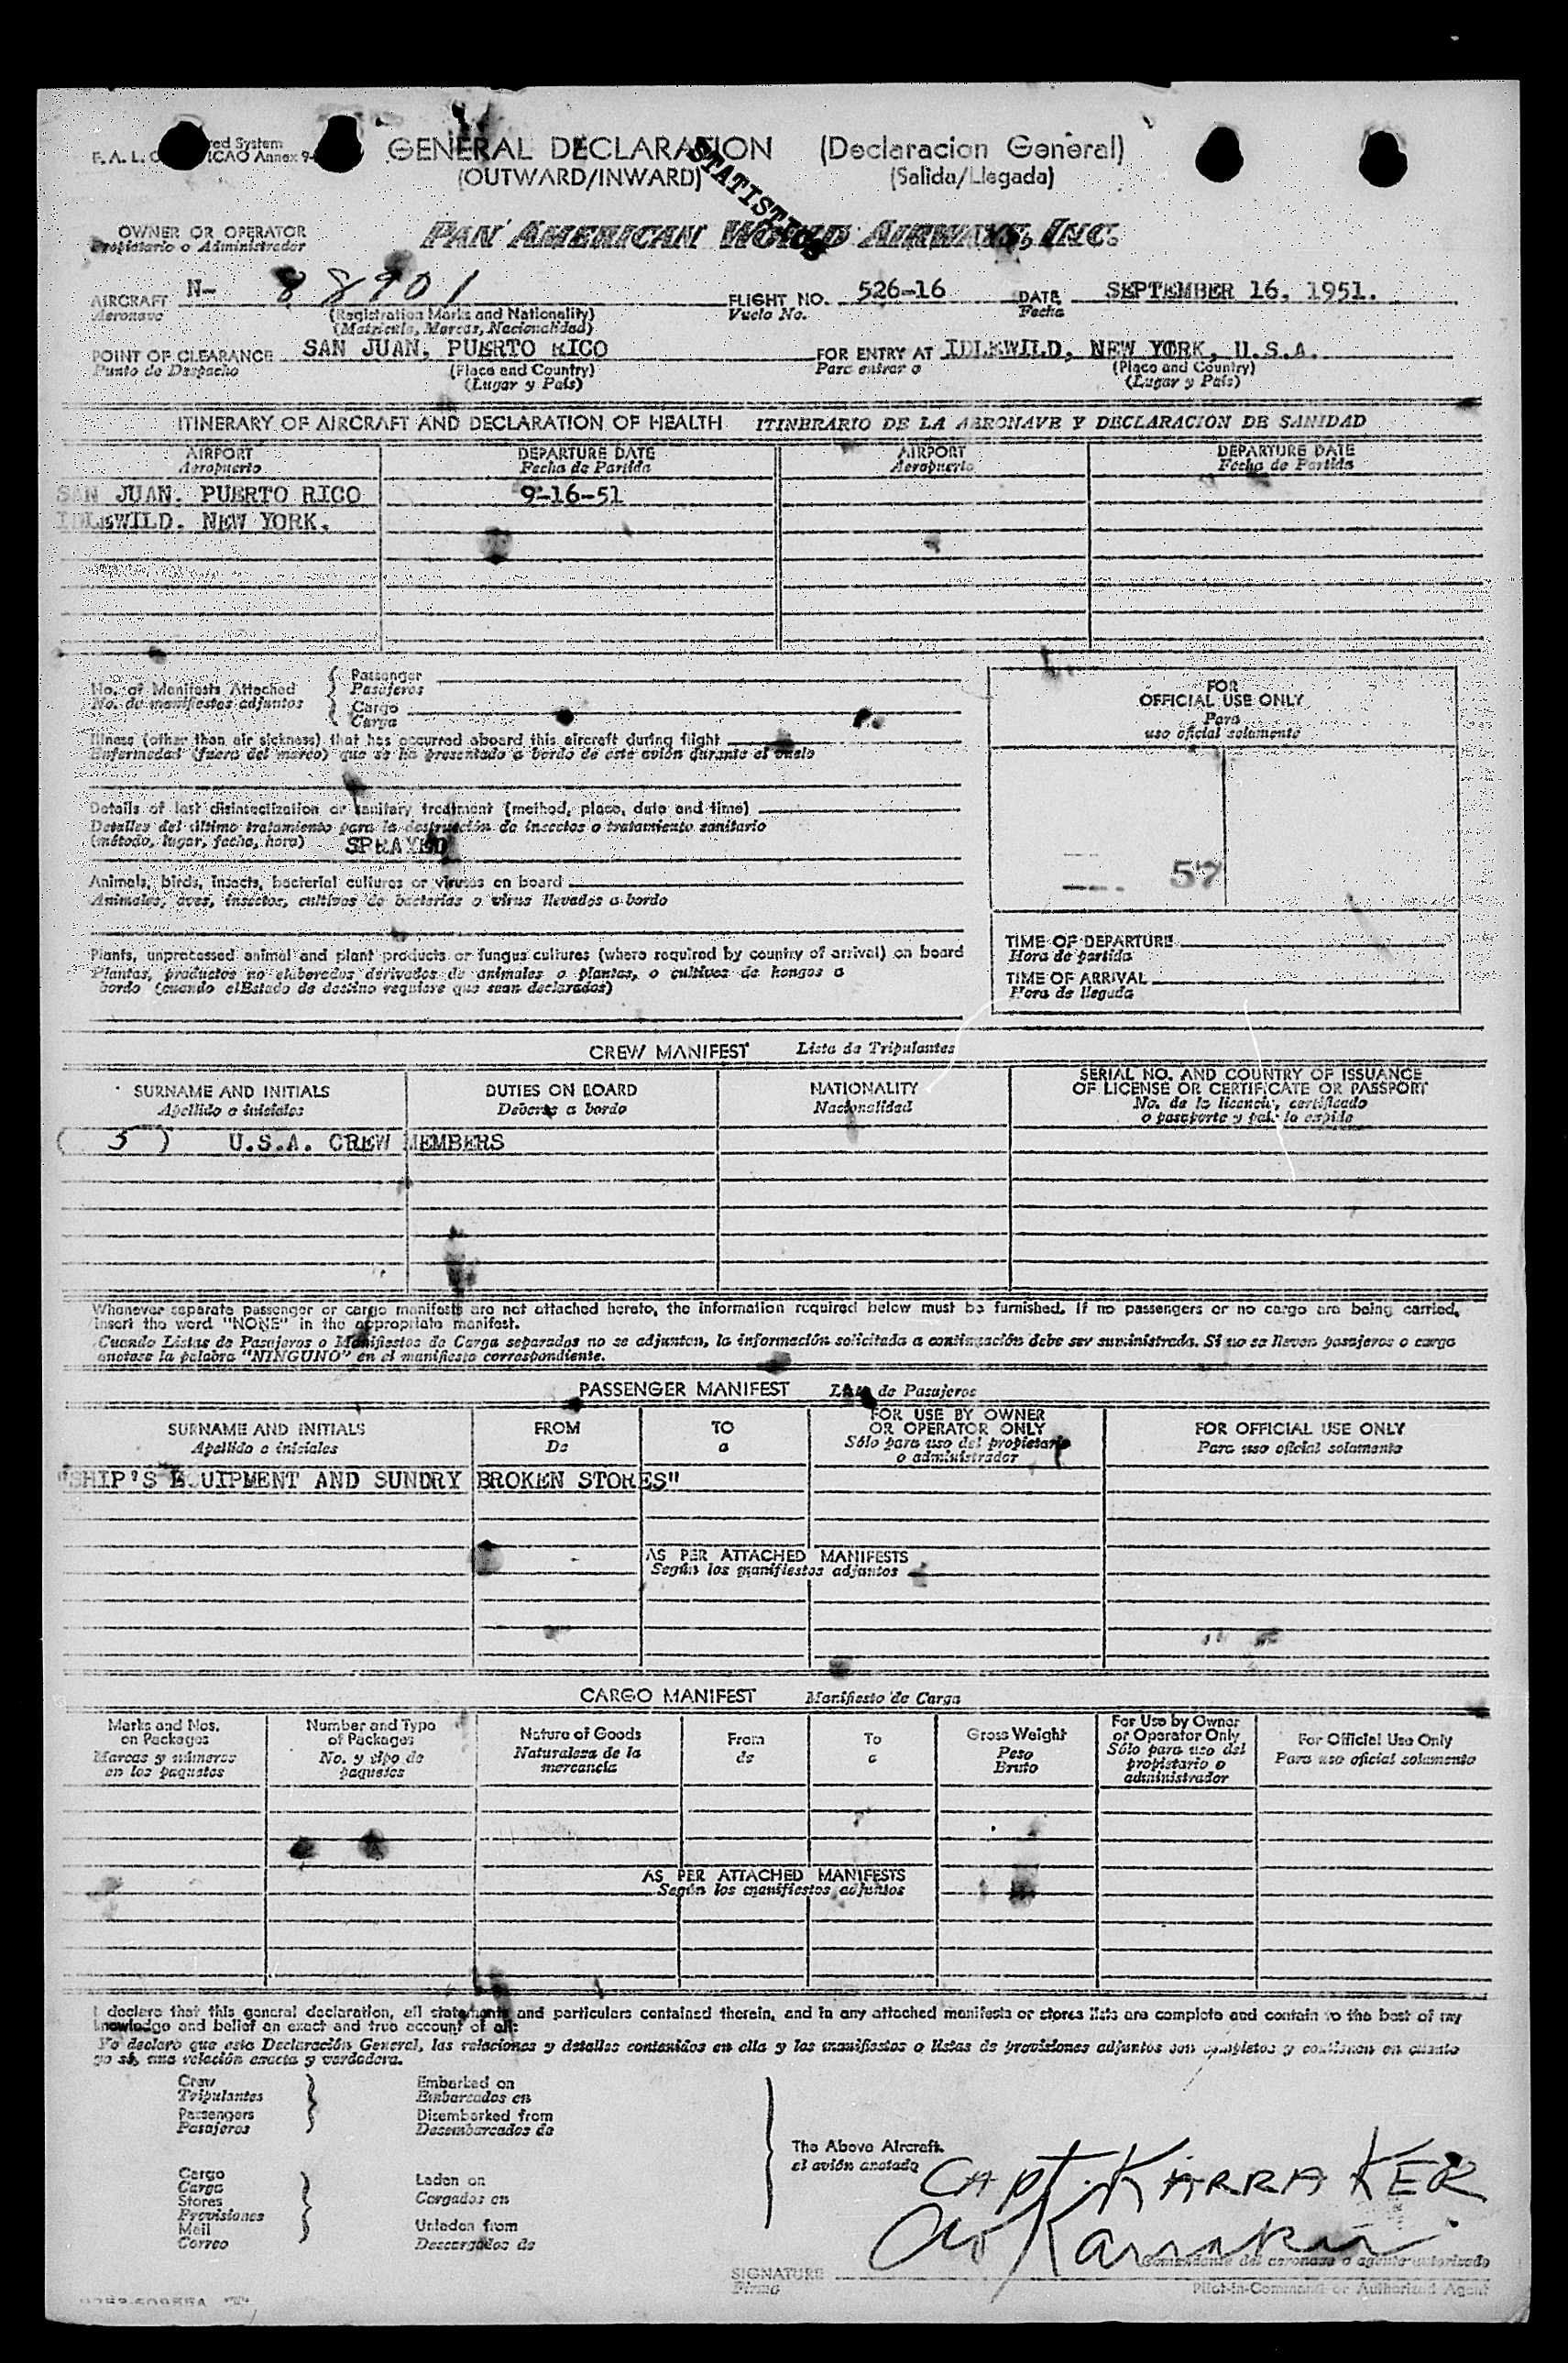 red System
F. A. L. ICAO Annex 9-
GENERAL DECLARATION (Declaracion General)
(OUTWARD/INWARD) (Salida/Llegada)
STATISTICS
OWNER OR OPERATOR
Propietario o Administrador
PAN AMERICAN WORLD AIRWAYS, INC.
AIRCRAFT N- 88901 FLIGHT NO. 526-16 DATE SEPTEMBER 16, 1951.
Aeronave (Registration Marks and Nationality) Vuelo No. Fecha
(Matricula, Marcas, Nacionalidad)
POINT OF CLEARANCE SAN JUAN, PUERTO RICO FOR ENTRY AT IDLEWILD, NEW YORK, U.S.A.
Punto de Despacho (Place and Country) Para entrar a (Place and Country)
(Lugar y País) (Lugar y País)
ITINERARY OF AIRCRAFT AND DECLARATION OF HEALTH ITINERARIO DE LA AERONAVE Y DECLARACION DE SANIDAD
AIRPORT DEPARTURE DATE AIRPORT DEPARTURE DATE
Aeropuerto Fecha de Partida Aeropuerto Fecha de Partida
SAN JUAN. PUERTO RICO 9-16-51
IDLEWILD. NEW YORK.
No. of Manifests Attached
No. de manifiestos adjuntos
Passenger
Pasajeros
Cargo
Carga
Illness (other than air sickness) that has occurred aboard this aircraft during flight
Enfermedad (fuera del mareo) que se ha presentado a bordo de este avión durante el vuelo
Details of last disinsectization or sanitary treatment (method, place, date and time)
Detalles del último tratamiento para la destrucción de insectos o tratamiento sanitario
(método, lugar, fecha, hora) SPRAYED
Animals, birds, insects, bacterial cultures or viruses on board
Animales, aves, insectos, cultivos de bacterias o virus llevados a bordo
Plants, unprocessed animal and plant products or fungus cultures (where required by country of arrival) on board
Plantas, productos no elaborados derivados de animales o plantas, o cultivos de hongos a
bordo (cuando el Estado de destino requiere que sean declarados)
FOR
OFFICIAL USE ONLY
Para
uso oficial solamente
57
TIME OF DEPARTURE
Hora de partida
TIME OF ARRIVAL
Hora de llegada
CREW MANIFEST Lista de Tripulantes
SURNAME AND INITIALS DUTIES ON BOARD NATIONALITY SERIAL NO. AND COUNTRY OF ISSUANCE
OF LICENSE OR CERTIFICATE OR PASSPORT
Apellido e iniciales Deberes a bordo Nacionalidad No. de la licencia, certificado
o pasaporte y país lo expide
( 5 ) U.S.A. CREW MEMBERS
Whenever separate passenger or cargo manifests are not attached hereto, the information required below must be furnished. If no passengers or no cargo are being carried,
insert the word "NONE" in the appropriate manifest.
Cuando Listas de Pasajeros o Manifiestos de Carga separados no se adjunten, la información solicitada a continuación debe ser suministrada. Si no se llevan pasajeros o carga
anotese la palabra "NINGUNO" en el manifiesto correspondiente.
PASSENGER MANIFEST Lista de Pasajeros
SURNAME AND INITIALS FROM TO FOR USE BY OWNER
OR OPERATOR ONLY FOR OFFICIAL USE ONLY
Apellido e iniciales De a Sólo para uso del propietario
o administrador Para uso oficial solamente
"SHIP'S EQUIPMENT AND SUNDRY BROKEN STORES"
AS PER ATTACHED MANIFESTS
Según los manifiestos adjuntos
CARGO MANIFEST Manifiesto de Carga
Marks and Nos.
on Packages
Marcas y números
en los paquetes
Number and Type
of Packages
No. y tipo de
paquetes
Nature of Goods
Naturaleza de la
mercancía
From
de
To
a
Gross Weight
Peso
Bruto
For Use by Owner
or Operator Only
Sólo para uso del
propietario o
administrador
For Official Use Only
Para uso oficial solamente
AS PER ATTACHED MANIFESTS
Según los manifiestos adjuntos
I declare that this general declaration, all statements and particulars contained therein, and in any attached manifests or stores lists are complete and contain to the best of my
knowledge and belief an exact and true account of all:
Yo declaro que esta Declaración General, las relaciones y detalles contenidos en ella y los manifiestos o listas de provisiones adjuntos son completos y contienen en cuanto
yo sé, una relación exacta y verdadera.
Crew
Tripulantes
Passengers
Pasajeros
Embarked on
Embarcados en
Disembarked from
Desembarcados de
Cargo
Carga
Stores
Provisiones
Mail
Correo
Laden on
Cargados en
Unladen from
Descargados de
The Above Aircraft.
el avión anotado
CAPT. KARRAKER
Karraker
Comandante del aeronave o agente autorizado
SIGNATURE
Firma
Pilot-in-Command or Authorized Agent